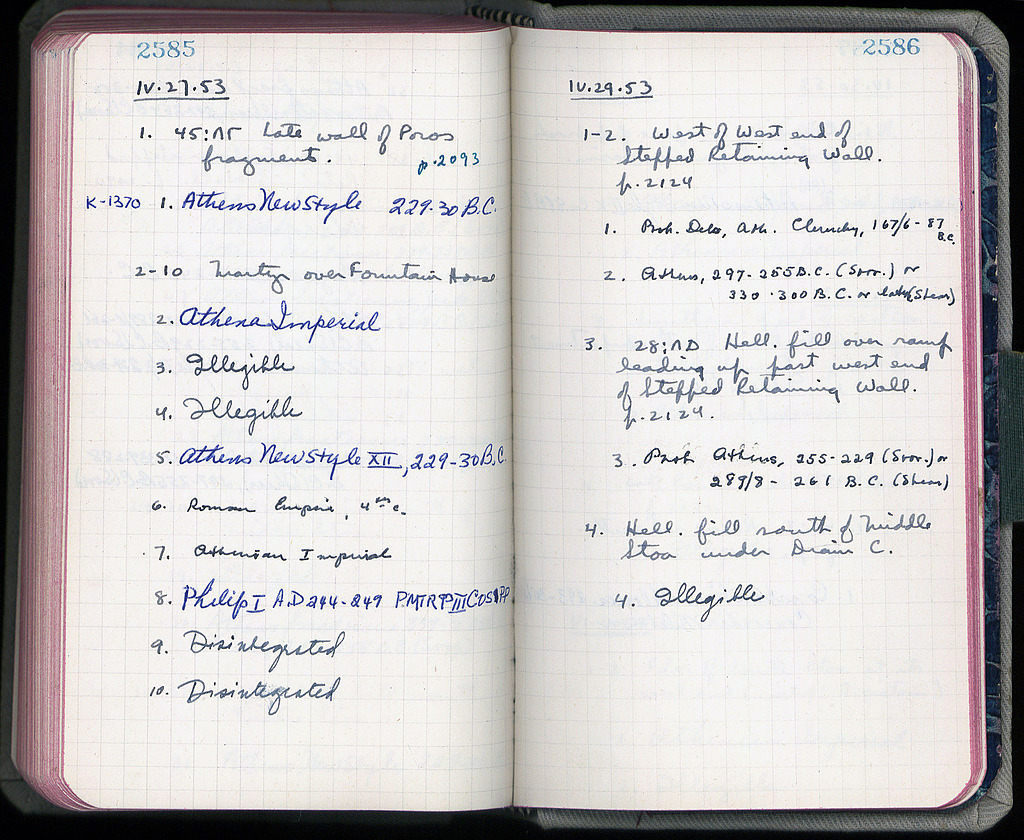 2585
IV.27.53
1. 45:ΛΓ Late wall of Poros
fragments. p.2093
K-1370 1. Athens New Style 229-30 B.C.
2-10 over Fountain House
2. Athena Imperial
3. Illegible
4. Illegible
5. Athens New Style XII, 229-30 B.C.
6. Roman Empire, 4th c.
7. Athenian Imperial
8. Philip I A.D 244-249 P.M.TR.P.III COS PP
9. Disintegrated
10. Disintegrated
2586
IV.29.53
1-2. West of West end of
Stepped Retaining Wall.
p.2124
1. Prob. Delos, Ath. Cleruchy, 167/6-87
B.C.
2. Athens, 297-255 B.C. (Svor.) or
330-300 B.C. or later (Shear)
3. 28:ΛΔ Hell. fill over ramp
leading up past west end
of Stepped Retaining Wall.
p.2124.
3. Prob. Athens, 255-229 (Svor.) or
289/8-261 B.C. (Shear)
4. Hell. fill south of Middle
Stoa under Drain C.
4. Illegible